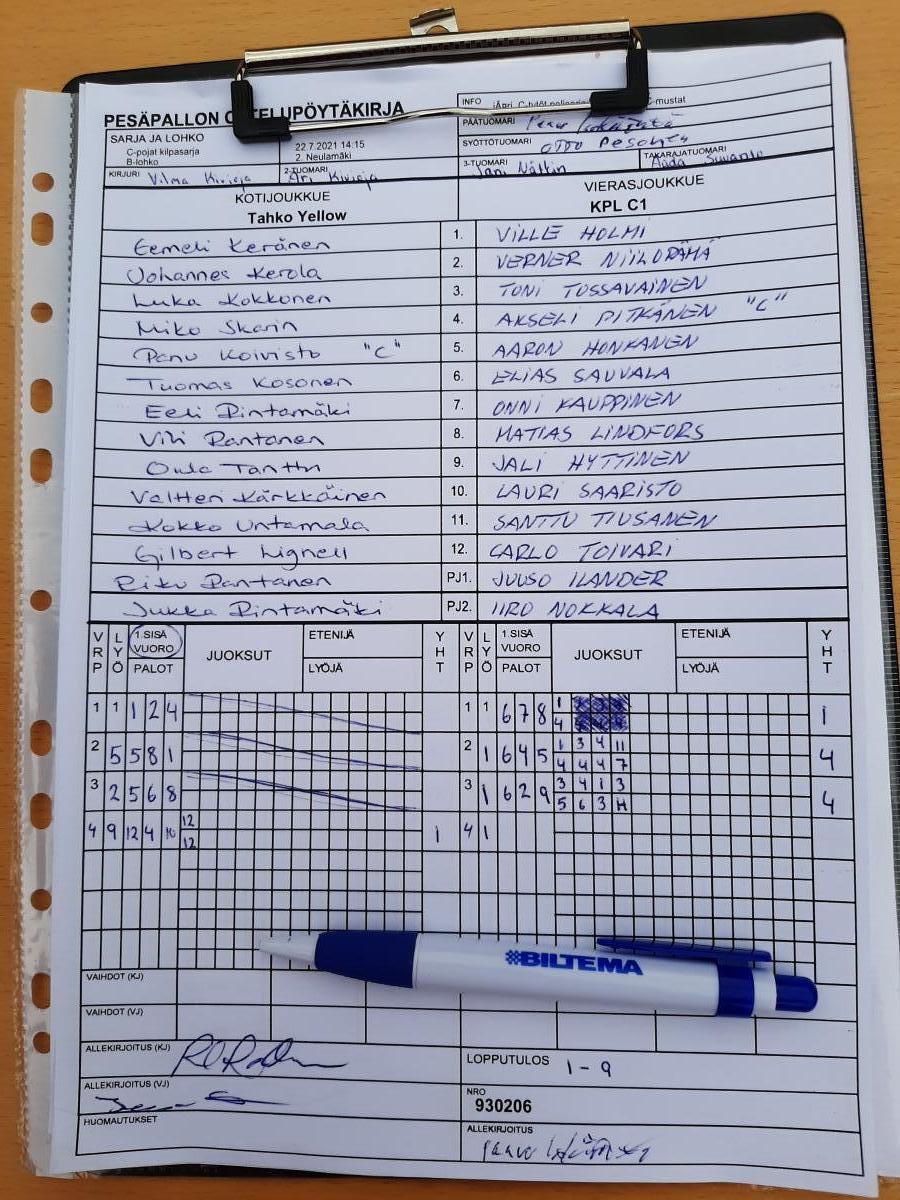 PESÄPALLON OTTELUPÖYTÄKIRJA
INFO C-mustat
SARJA JA LOHKO
C-pojat kilpasarja
B-lohko
22.7.2021 14:15
2. Neulamäki
PÄÄTUOMARI
SYÖTTÖTUOMARI Otto Pesonen
KIRJURI Vilma Kivioja
2-TUOMARI Ari Kivioja
3-TUOMARI Jani Nättin
TAKARAJATUOMARI Aada Suvanto
KOTIJOUKKUE VIERASJOUKKUE
Tahko Yellow KPL C1
Eemeli Keränen 1. VILLE HOLMI
Johannes Kerola 2. VERNER NIILORÄMÄ
Luka Kokkonen 3. TONI TOSSAVAINEN
Miko Skarin 4. AKSELI PITKÄNEN "C"
Panu Koivisto "C" 5. AARON HONKANEN
Tuomas Kosonen 6. ELIAS SAUVALA
Eeli Rintamäki 7. ONNI KAUPPINEN
Vili Rantanen 8. MATIAS LINDFORS
Oula Tanttu 9. JALI HYTTINEN
Valtteri Kärkkäinen 10. LAURI SAARISTO
Kokko Untamala 11. SANTTU TIUSANEN
Gilbert Lignell 12. CARLO TOIVARI
Riku Rantanen PJ1. JUUSO ILANDER
Jukka Rintamäki PJ2. IIRO NOKKALA
VRP LYÖ 1.SISÄ VUORO PALOT JUOKSUT ETENIJÄ LYÖJÄ YHT VRP LYÖ 1.SISÄ VUORO PALOT JUOKSUT ETENIJÄ LYÖJÄ YHT
1 1 1 2 4 1 1 6 7 8 1 1
4
2 5 5 8 1 2 1 6 4 5 1 3 4 11 4
4 4 4 7
3 2 5 6 8 3 1 6 2 9 3 4 1 3 4
5 6 3 H
4 9 12 4 10 12 1 4 1
12
BILTEMA
VAIHDOT (KJ)
VAIHDOT (VJ)
ALLEKIRJOITUS (KJ)
LOPPUTULOS 1-9
ALLEKIRJOITUS (VJ)
NRO
930206
HUOMAUTUKSET
ALLEKIRJOITUS